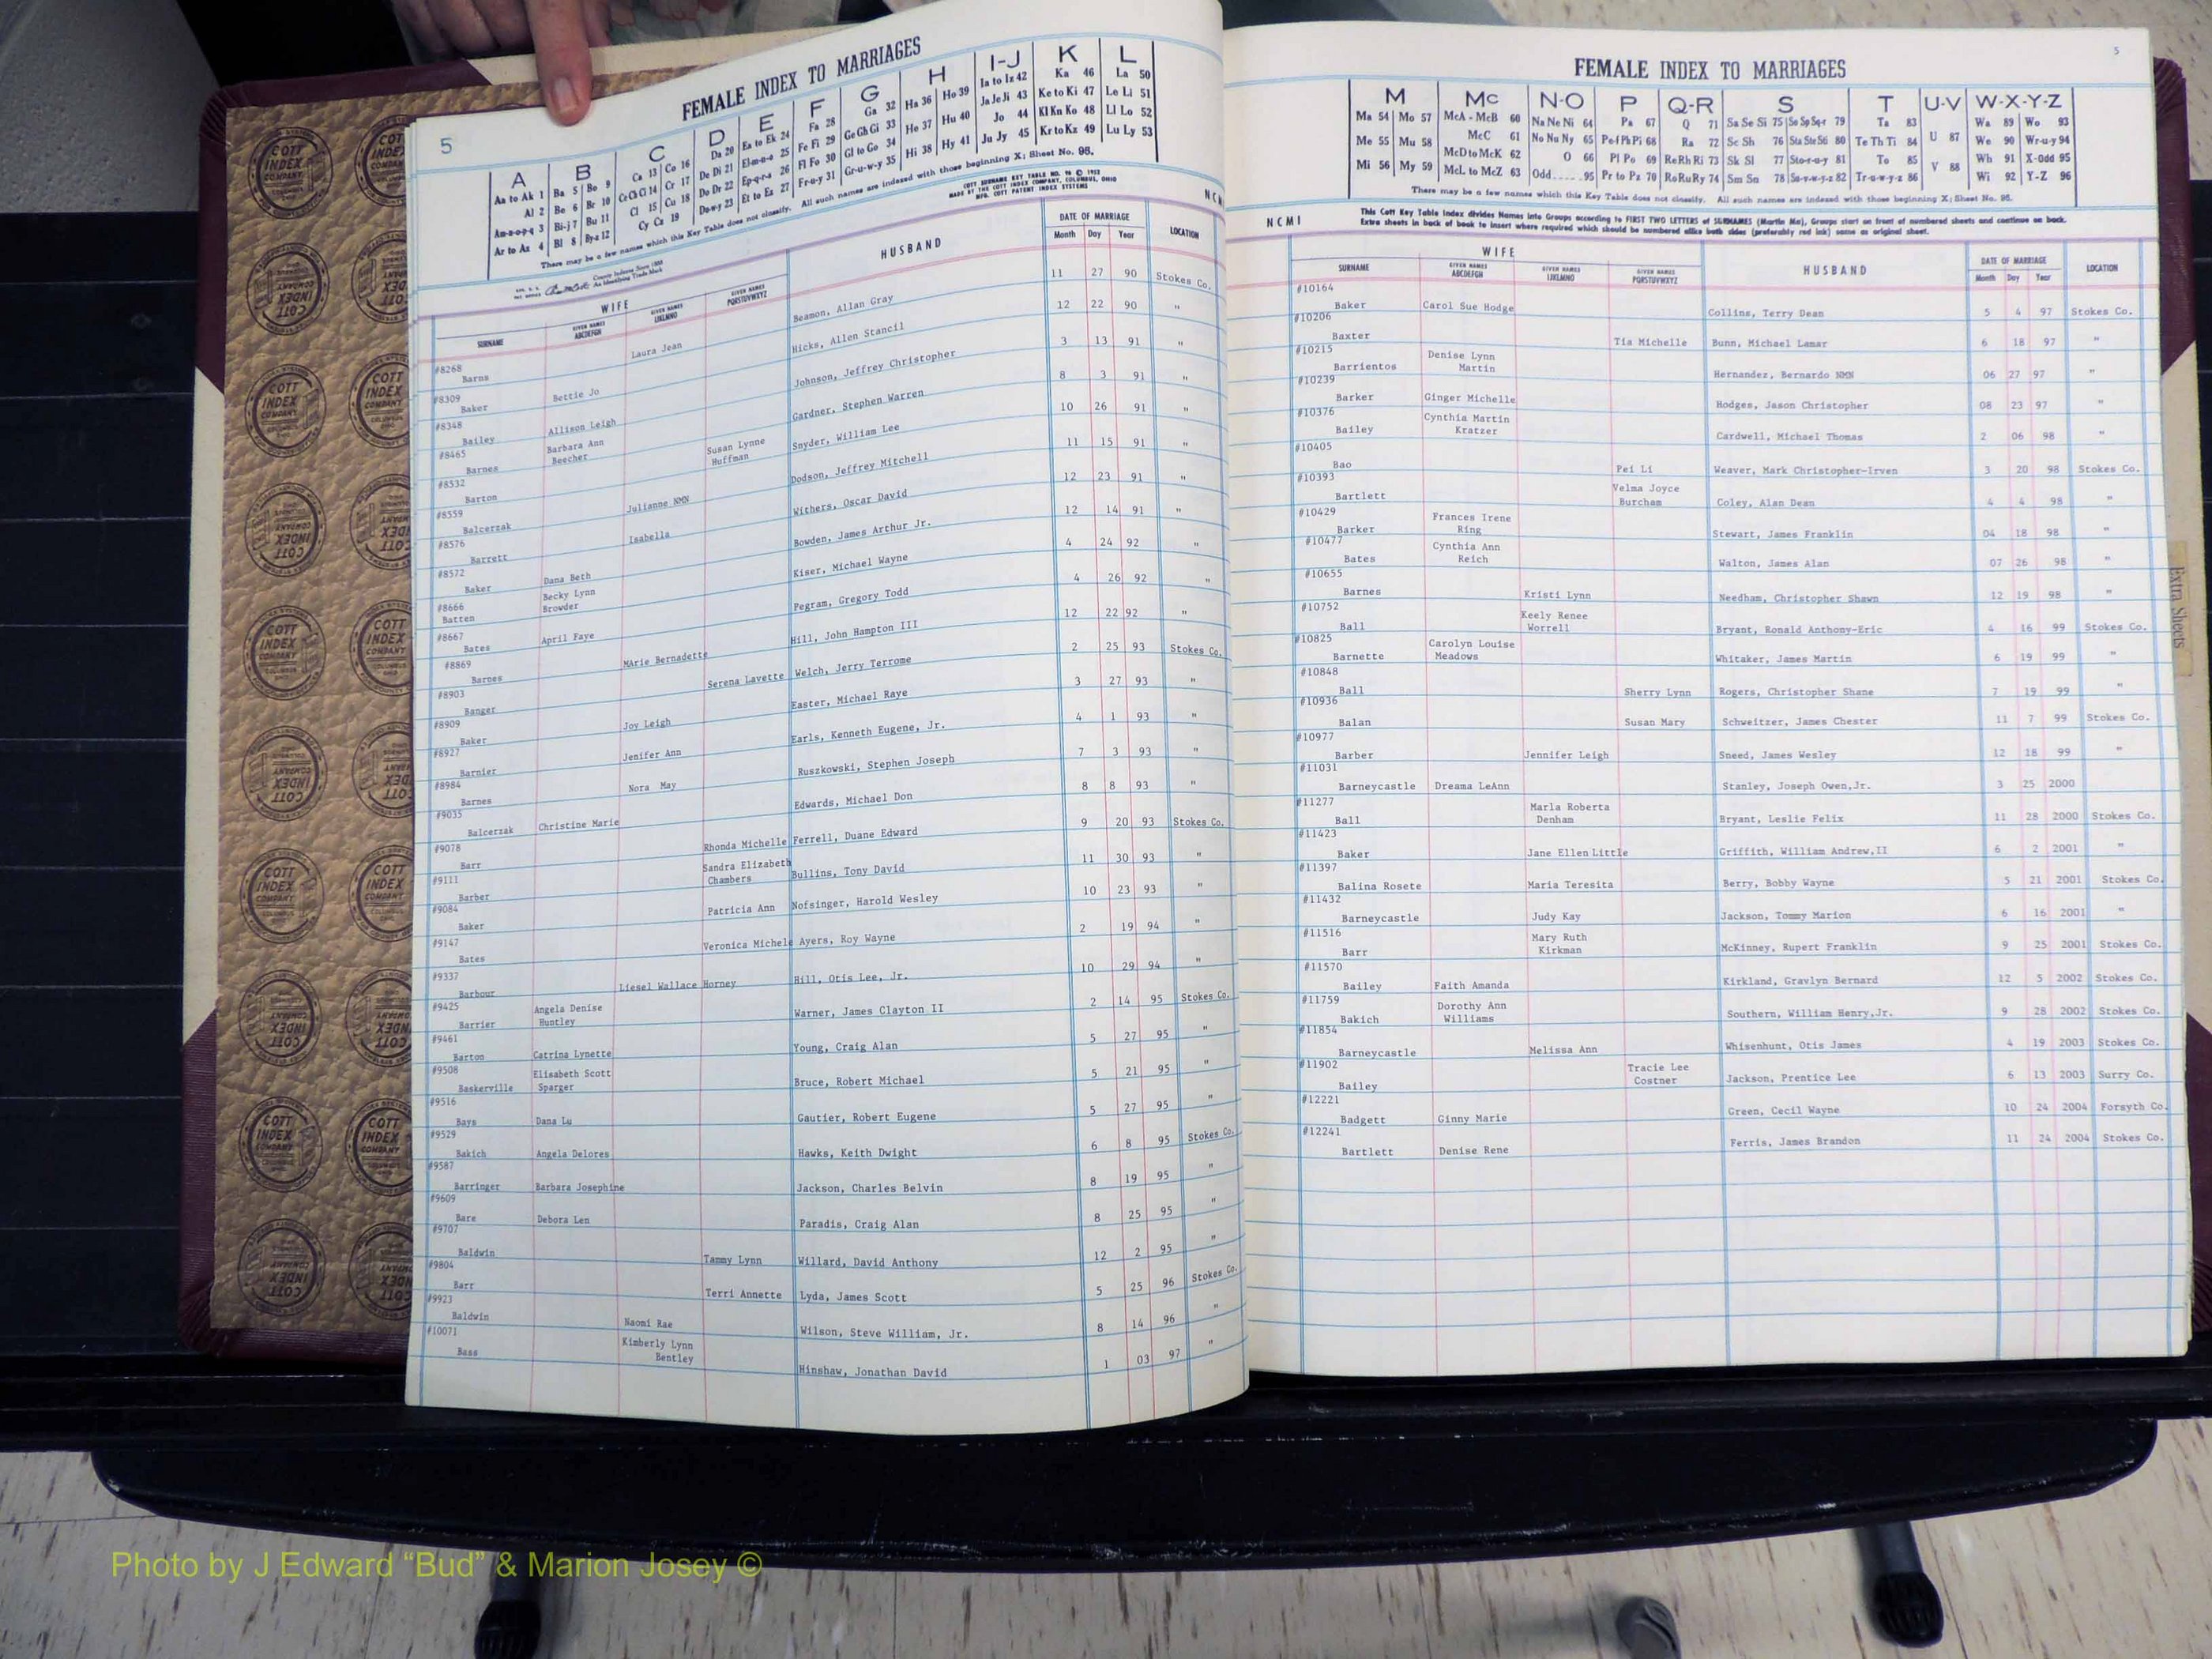 5
FEMALE INDEX TO MARRIAGES
A B C D E F G H I-J K L
Aa to Ak 1 Ba 5 Bo 9 Ca 13 Co 16 Da 20 Ea to Ek 24 Fa 28 Ga 32 Ha 36 Ho 39 Ia to Iz 42 Ka 46 La 50
Al 2 Be 6 Br 10 Ce Ch Ci 14 Cr 17 De Di 21 El-m-n-o 25 Fe Fi 29 Ge Gh Gi 33 He 37 Hu 40 Ja Je Ji 43 Ke to Ki 47 Le Li 51
Am-n-o-p-q 3 Bi-j 7 Bu 11 Cl 15 Cu 18 Do Dr 22 Ep-q-r-s 26 Fl Fo 30 Gl to Go 34 Hi 38 Hy 41 Jo 44 Kl Kn Ko 48 Ll Lo 52
Ar to Az 4 Bl 8 By-z 12 Cy Cz 19 Du-w-y 23 Et to Ez 27 Fr-u-y 31 Gr-u-w-y 35 Ju Jy 45 Kr to Kz 49 Lu Ly 53
There may be a few names which this Key Table does not classify. All such names are indexed with those beginning X; Sheet No. 95.
COTT SURNAME KEY TABLE NO. 96 © 1952
MADE BY THE COTT INDEX COMPANY, COLUMBUS, OHIO
MFG. COTT PATENT INDEX SYSTEMS
County Indexes Since 1888
An Identifying Trade Mark
WIFE HUSBAND DATE OF MARRIAGE LOCATION
SURNAME GIVEN NAMES ABCDEFGH GIVEN NAMES IJKLMNO GIVEN NAMES PQRSTUVWXYZ Month Day Year
#8268 Barns Laura Jean Beamon, Allan Gray 11 27 90 Stokes Co.
#8309 Baker Bettie Jo Hicks, Allen Stancil 12 22 90 "
#8348 Bailey Allison Leigh Johnson, Jeffrey Christopher 3 13 91 "
#8465 Barnes Barbara Ann Beecher Gardner, Stephen Warren 8 3 91 "
#8532 Barton Susan Lynne Huffman Snyder, William Lee 10 26 91 "
#8559 Balcerzak Julianne NMN Dodson, Jeffrey Mitchell 11 15 91 "
#8576 Barrett Isabella Withers, Oscar David 12 23 91 "
#8572 Baker Dana Beth Bowden, James Arthur Jr. 12 14 91 "
#8666 Batten Becky Lynn Browder Kiser, Michael Wayne 4 24 92 "
#8667 Bates April Faye Pegram, Gregory Todd 4 26 92 "
#8869 Barnes MArie Bernadette Hill, John Hampton III 12 22 92 "
#8903 Banger Serena Lavette Welch, Jerry Terrome 2 25 93 Stokes Co.
#8909 Baker Joy Leigh Easter, Michael Raye 3 27 93 "
#8927 Barnier Jenifer Ann Earls, Kenneth Eugene, Jr. 4 1 93 "
#8984 Barnes Nora May Ruszkowski, Stephen Joseph 7 3 93 "
#9035 Balcerzak Christine Marie Edwards, Michael Don 8 8 93 "
#9078 Barr Rhonda Michelle Ferrell, Duane Edward 9 20 93 Stokes Co.
#9111 Barber Sandra Elizabeth Chambers Bullins, Tony David 11 30 93 "
#9084 Baker Patricia Ann Nofsinger, Harold Wesley 10 23 93 "
#9147 Bates Veronica Michele Ayers, Roy Wayne 2 19 94 "
#9337 Barbour Liesel Wallace Horney Hill, Otis Lee, Jr. 10 29 94 "
#9425 Barrier Angela Denise Huntley Warner, James Clayton II 2 14 95 Stokes Co.
#9461 Barton Catrina Lynette Young, Craig Alan 5 27 95 "
#9508 Baskerville Elisabeth Scott Sparger Bruce, Robert Michael 5 21 95 "
#9516 Bays Dana Lu Gautier, Robert Eugene 5 27 95 "
#9529 Bakich Angela Delores Hawks, Keith Dwight 6 8 95 Stokes Co.
#9587 Barringer Barbara Josephine Jackson, Charles Belvin 8 19 95 "
#9609 Bare Debora Len Paradis, Craig Alan 8 25 95 "
#9707 Baldwin Tammy Lynn Willard, David Anthony 12 2 95 "
#9804 Barr Terri Annette Lyda, James Scott 5 25 96 Stokes Co.
#9923 Baldwin Naomi Rae Wilson, Steve William, Jr. 8 14 96 "
#10071 Bass Kimberly Lynn Bentley Hinshaw, Jonathan David 1 03 97 "
5
FEMALE INDEX TO MARRIAGES
M Mc N-O P Q-R S T U-V W-X-Y-Z
Ma 54 Mo 57 McA - McB 60 Na Ne Ni 64 Pa 67 Q 71 Sa Se Si 75 So Sp Sq-r 79 Ta 83 U 87 Wa 89 Wo 93
Me 55 Mu 58 McC 61 No Nu Ny 65 Pe Pf Ph Pi 68 Ra 72 Sc Sh 76 Sta Ste 56 80 Te Th Ti 84 V 88 We 90 Wr-u-y 94
Mi 56 My 59 McD to McK 62 O 66 Pl Po 69 Re Rh Ri 73 Sk Sl 77 Sto-r-u-y 81 To 85 Wh 91 X-Odd 95
McL to McZ 63 Odd.....95 Pr to Pz 70 Ro Ru Ry 74 Sm Sn 78 Su-v-w-y-z 82 Tr-u-w-y-z 86 Wi 92 Y-Z 96
There may be a few names which this Key Table does not classify. All such names are indexed with those beginning X; Sheet No. 95.
NCMI This Cott Key Table Index divides Names into Groups according to FIRST TWO LETTERS of SURNAMES (Martin Ma), Groups start on front of numbered sheets and continue on back.
Extra sheets in back of book to insert where required which should be numbered alike both sides (preferably red ink) same as original sheet.
WIFE HUSBAND DATE OF MARRIAGE LOCATION
SURNAME GIVEN NAMES ABCDEFGH GIVEN NAMES IJKLMNO GIVEN NAMES PQRSTUVWXYZ Month Day Year
#10164 Baker Carol Sue Hodge Collins, Terry Dean 5 4 97 Stokes Co.
#10206 Baxter Tia Michelle Bunn, Michael Lamar 6 18 97 "
#10215 Barrientos Denise Lynn Martin Hernandez, Bernardo NMN 06 27 97 "
#10239 Barker Ginger Michelle Hodges, Jason Christopher 08 23 97 "
#10376 Bailey Cynthia Martin Kratzer Cardwell, Michael Thomas 2 06 98 "
#10405 Bao Pei Li Weaver, Mark Christopher-Irven 3 20 98 Stokes Co.
#10393 Bartlett Velma Joyce Burcham Coley, Alan Dean 4 4 98 "
#10429 Barker Frances Irene Ring Stewart, James Franklin 04 18 98 "
#10477 Bates Cynthia Ann Reich Walton, James Alan 07 26 98 "
#10655 Barnes Kristi Lynn Needham, Christopher Shawn 12 19 98 "
#10752 Ball Keely Renee Worrell Bryant, Ronald Anthony-Eric 4 16 99 Stokes Co.
#10825 Barnette Carolyn Louise Meadows Whitaker, James Martin 6 19 99 "
#10848 Ball Sherry Lynn Rogers, Christopher Shane 7 19 99 "
#10936 Balan Susan Mary Schweitzer, James Chester 11 7 99 Stokes Co.
#10977 Barber Jennifer Leigh Sneed, James Wesley 12 18 99 "
#11031 Barneycastle Dreama LeAnn Stanley, Joseph Owen,Jr. 3 25 2000
#11277 Ball Marla Roberta Denham Bryant, Leslie Felix 11 28 2000 Stokes Co.
#11423 Baker Jane Ellen Little Griffith, William Andrew,II 6 2 2001 "
#11397 Balina Rosete Maria Teresita Berry, Bobby Wayne 5 21 2001 Stokes Co.
#11432 Barneycastle Judy Kay Jackson, Tommy Marion 6 16 2001 "
#11516 Barr Mary Ruth Kirkman McKinney, Rupert Franklin 9 25 2001 Stokes Co.
#11570 Bailey Faith Amanda Kirkland, Gravlyn Bernard 12 5 2002 Stokes Co.
#11759 Bakich Dorothy Ann Williams Southern, William Henry,Jr. 9 28 2002 Stokes Co.
#11854 Barneycastle Melissa Ann Whisenhunt, Otis James 4 19 2003 Stokes Co.
#11902 Bailey Tracie Lee Costner Jackson, Prentice Lee 6 13 2003 Surry Co.
#12221 Badgett Ginny Marie Green, Cecil Wayne 10 24 2004 Forsyth Co.
#12241 Bartlett Denise Rene Ferris, James Brandon 11 24 2004 Stokes Co.
Extra Sheets
COTT INDEX COMPANY
Photo by J Edward “Bud” & Marion Josey ©